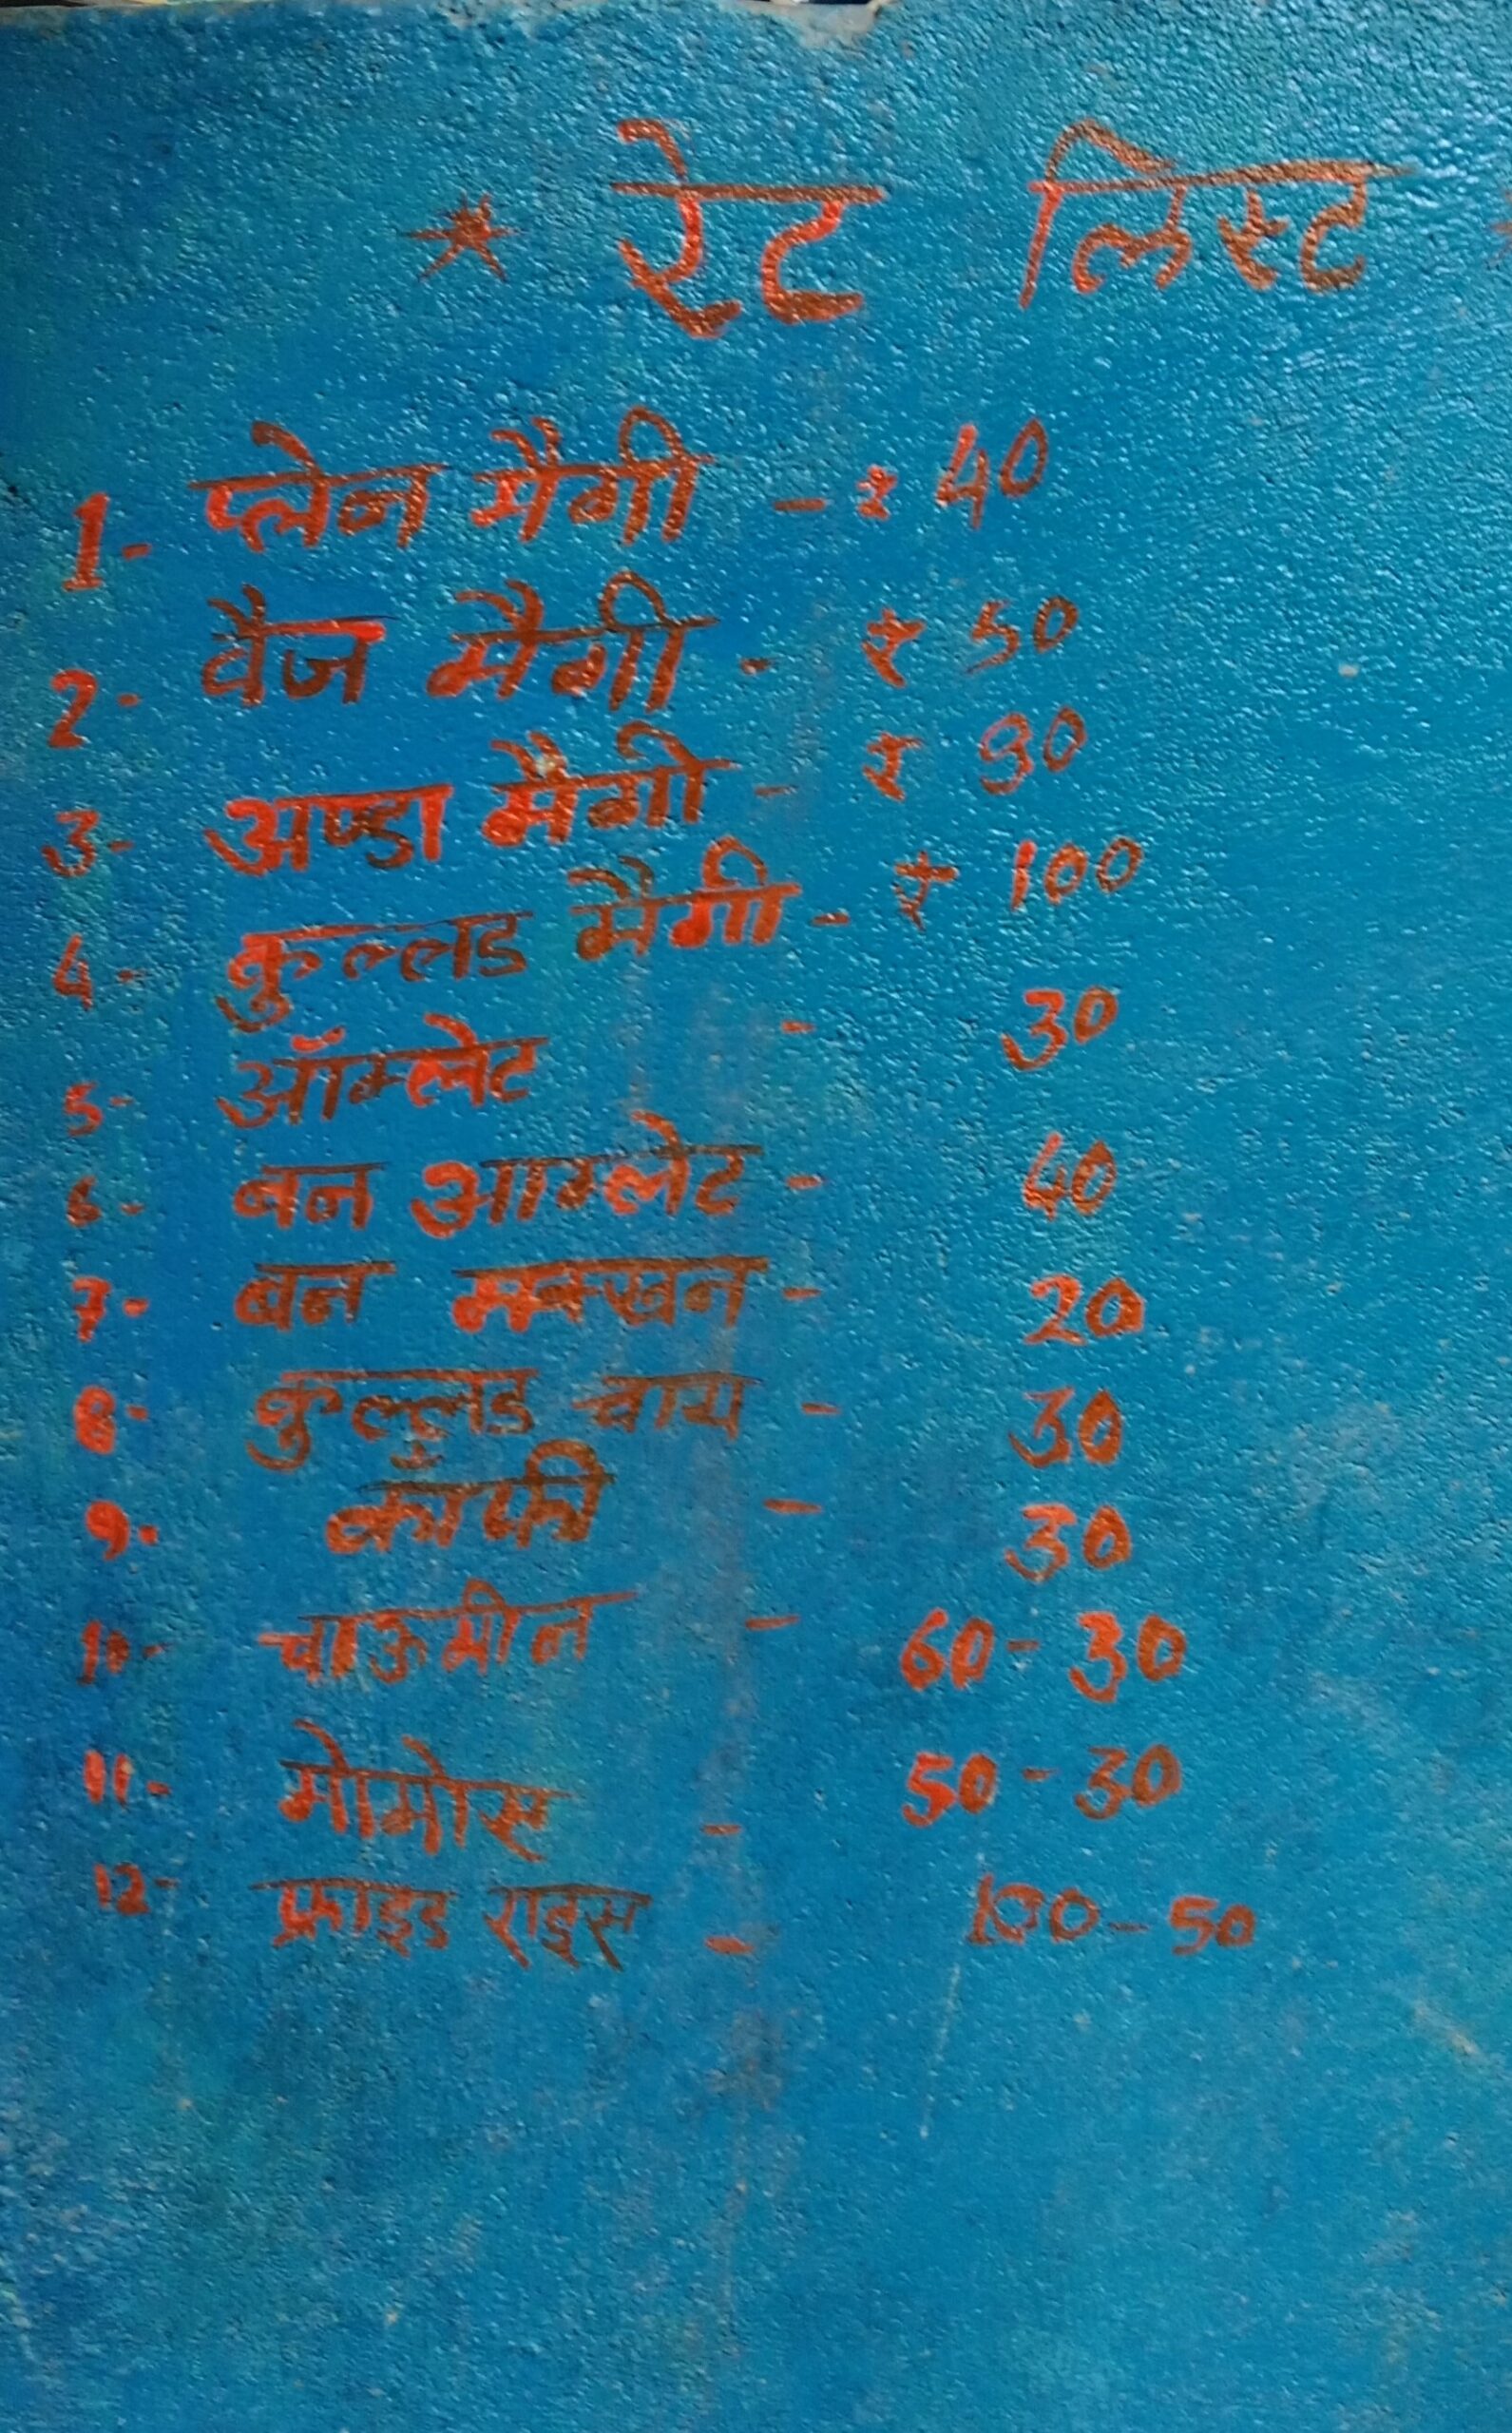 * रेट लिस्ट *
1- प्लेन मैगी - ₹ 40
2- वैज मैगी - ₹ 50
3- अण्डा मैगी - ₹ 90
4- कुल्लड मैगी - ₹ 100
5- ऑम्लेट - 30
6- बन आम्लेट - 40
7- बन मक्खन - 20
8- कुल्लड चाय - 30
9- कॉफी - 30
10- चाऊमीन - 60 - 30
11- मोमोस - 50 - 30
12- फ्राइड राइस - 100 - 50